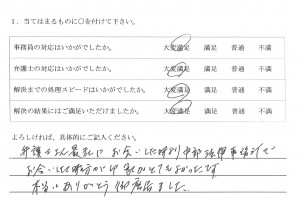 1．当てはまるものに○を付けて下さい。
事務員の対応はいかがでしたか。 大変満足 満足 普通 不満
弁護士の対応はいかがでしたか。 大変満足 満足 普通 不満
解決までの処理スピードはいかがでしたか。 大変満足 満足 普通 不満
解決の結果にはご満足いただけましたか。 大変満足 満足 普通 不満
よろしければ、具体的にご記入ください。
弁護士さん最初に お会いした時
お会いした とてもよかったです
本当にありがとう御座居ました。